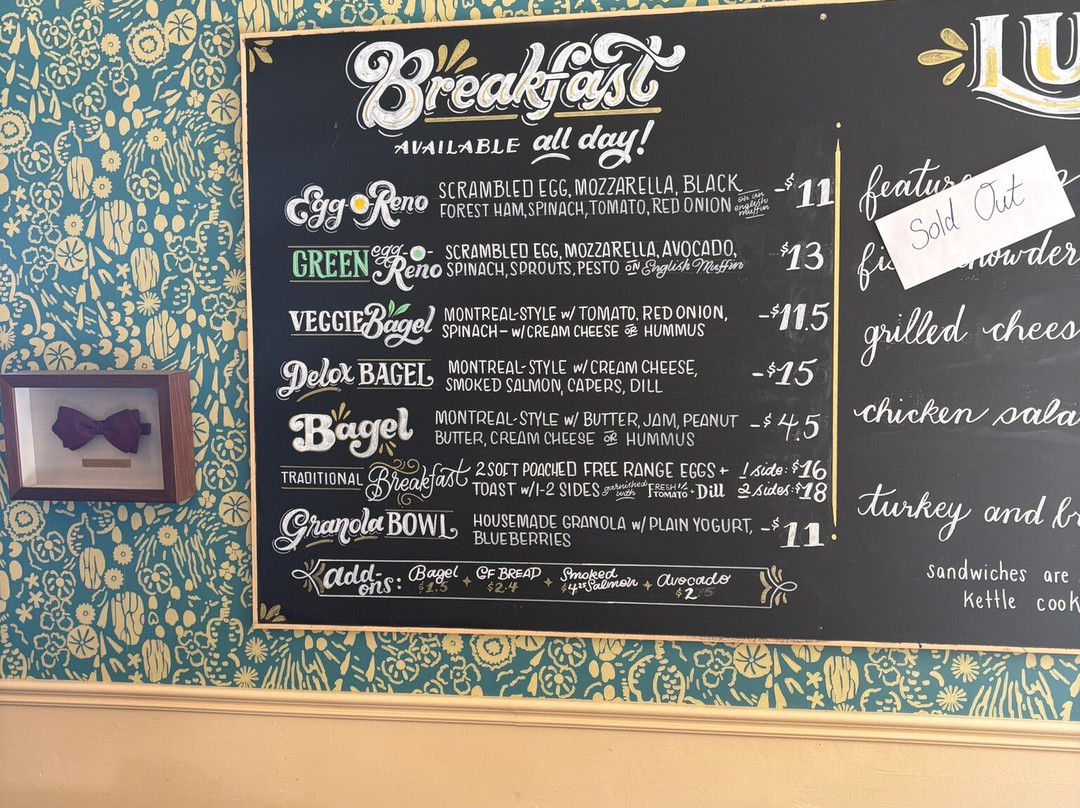 Breakfast
AVAILABLE all day!
Egg-O-Reno
SCRAMBLED EGG, MOZZARELLA, BLACK
FOREST HAM, SPINACH, TOMATO, RED ONION on an english muffin
-$11
GREEN egg-O-Reno
SCRAMBLED EGG, MOZZARELLA, AVOCADO,
SPINACH, SPROUTS, PESTO ON English Muffin
$13
VEGGIE Bagel
MONTREAL-STYLE w/ TOMATO, RED ONION,
SPINACH - w/ CREAM CHEESE OR HUMMUS
-$11.5
Delox BAGEL
MONTREAL-STYLE w/ CREAM CHEESE,
SMOKED SALMON, CAPERS, DILL
-$15
Bagel
MONTREAL-STYLE w/ BUTTER, JAM, PEANUT
BUTTER, CREAM CHEESE OR HUMMUS
-$4.5
TRADITIONAL Breakfast
2 SOFT POACHED FREE RANGE EGGS +
TOAST w/ 1-2 SIDES garnished with FRESH TOMATO + Dill
1 side: $16
2 sides: $18
Granola BOWL
HOUSEMADE GRANOLA w/ PLAIN YOGURT,
BLUEBERRIES
-$11
add-ons: Bagel + GF BREAD + Smoked Salmon + avocado
$1.5 $2.4 $4.25 $2
LU
featur
Sold Out
chowder
grilled chees
chicken sala
turkey and br
sandwiches are
kettle cook